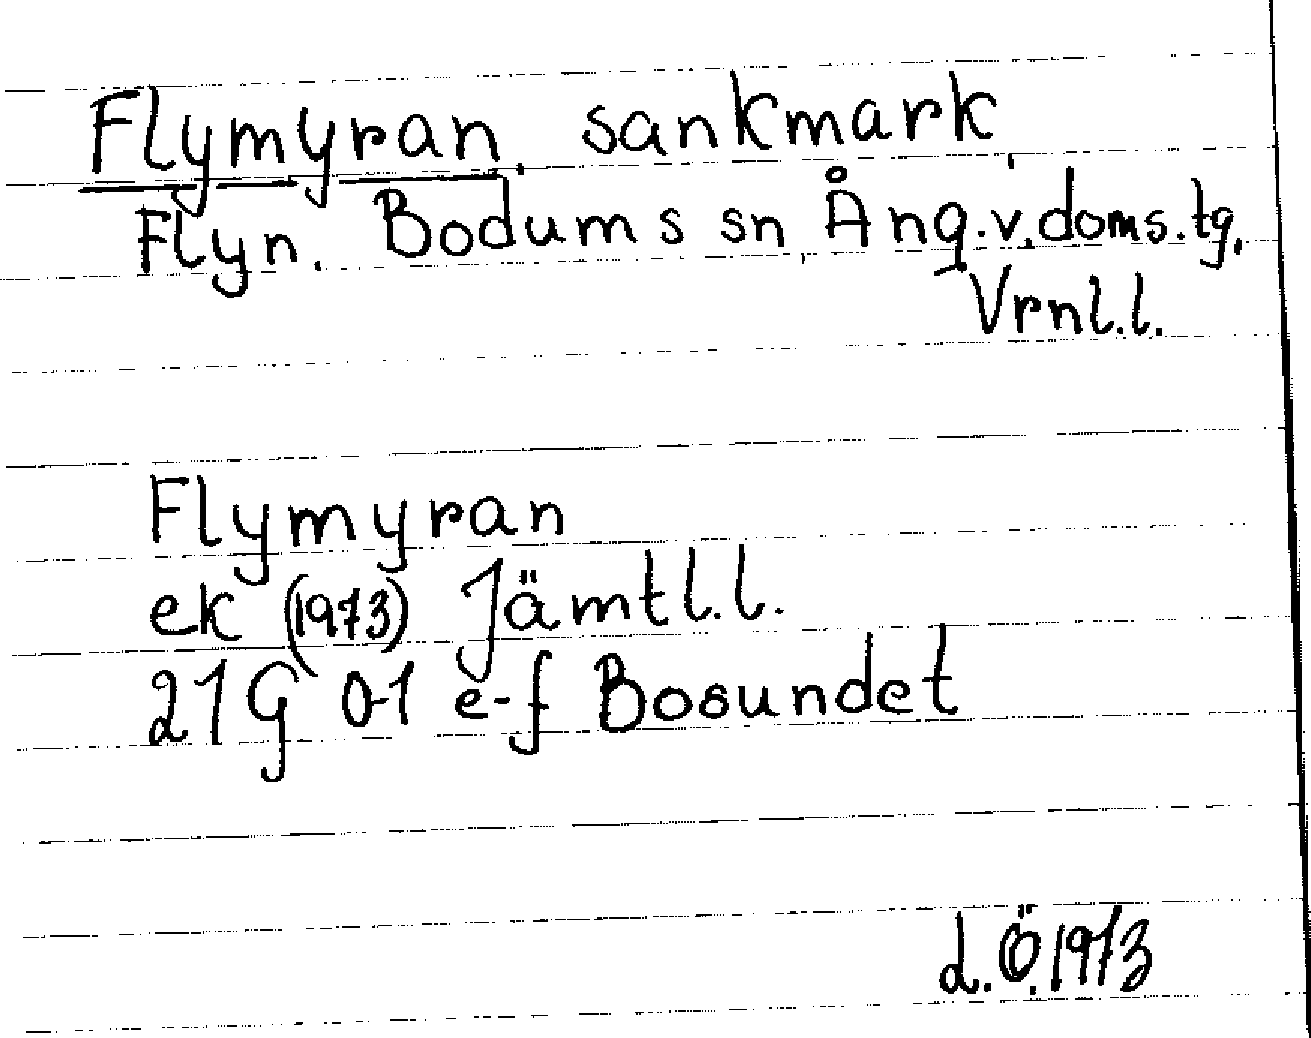 Flymyran, sankmark
Flyn. Bodums sn, Ång.v.doms.tg.
Vrnl.l.
Flymyran
ek (1973) Jämtl.l.
21G 0-1 e-f Bosundet
L.Ö.1973